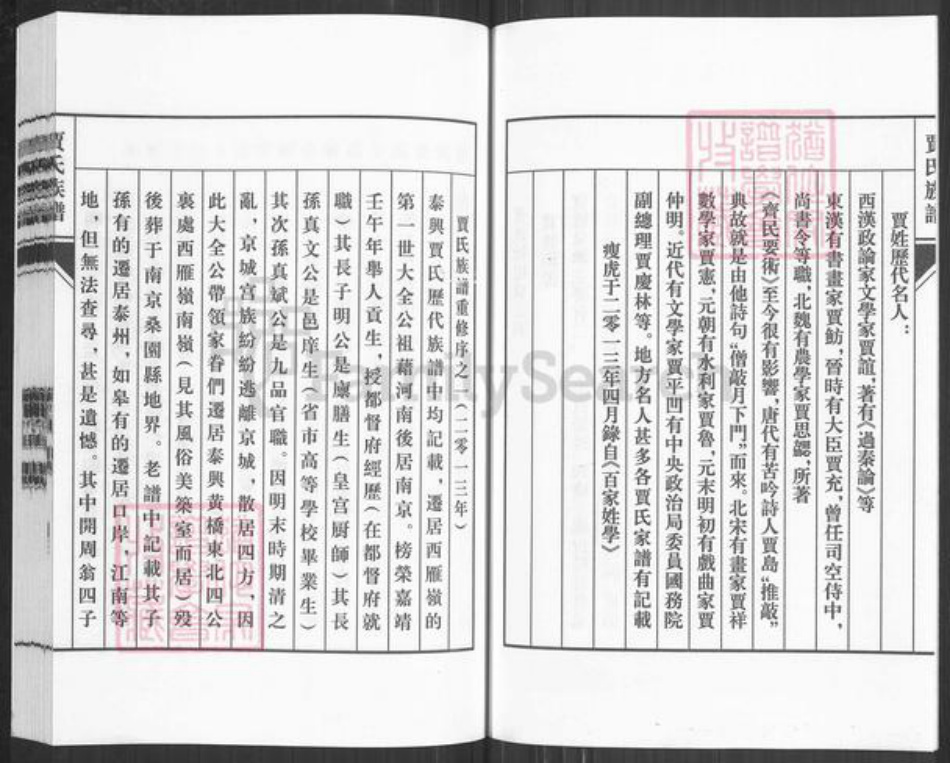 賈氏族譜
賈姓歷代名人：
西漢政論家文學家賈誼，著有《過秦論》等
東漢有書畫家賈魴，晉時有大臣賈充，曾任司空侍中，
尚書令等職，北魏有農學家賈思勰，所著
《齊民要術》至今很有影響，唐代有苦吟詩人賈島“推敲”
典故就是由他詩句“僧敲月下門”而來。北宋有畫家賈祥
數學家賈憲，元朝有水利家賈魯，元末明初有戲曲家賈
仲明。近代有文學家賈平凹有中央政治局委員國務院
副總理賈慶林等。地方名人甚多各賈氏家譜有記載
瘦虎于二零一三年四月錄自《百家姓學》
賈氏族譜重修序之一（二零一三年）
泰興賈氏歷代族譜中均記載，遷居西雁嶺的
第一世大全公祖藉河南後居南京。榜榮嘉靖
壬午年舉人貢生，授都督府經歷（在都督府就
職）其長子明公是廩膳生（皇宮厨師）其長
孫真文公是邑庠生（省市高等學校畢業生）
其次孫真斌公是九品官職。因明末時期清之
亂，京城宮族紛紛逃離京城，散居四方，因
此大全公帶領家眷們遷居泰興黃橋東北四公
裏處西雁嶺南嶺（見其風俗美築室而居）歿
後葬于南京桑園縣地界。老譜中記載其子
孫有的遷居泰州，如皋有的遷居口岸，江南等
地，但無法查尋，甚是遺憾。其中開周翁四子
賈氏族譜
FamilySearch